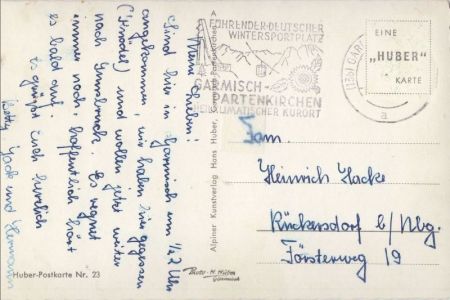 Meine Lieben!
Sind hier in Garmisch um 1/2 2 Uhr
angekommen, wir haben hier gegessen
(Knödel) und wollen jetzt weiter
nach Innsbruck. Es regnet
immer noch, hoffentlich hört
es bald auf.
Es grüßt Euch herzlich
Betty, und Hermann
Huber-Postkarte Nr. 23
Alpiner Kunstverlag Hans Huber, Garmisch-Partenkirchen
FÜHRENDER DEUTSCHER
WINTERSPORTPLATZ
GARMISCH-
PARTENKIRCHEN
HEILKLIMATISCHER KURORT
a
EINE
„HUBER"
KARTE
Fam.
Heinrich Hacke
Rückersdorf b/Nbg.
Försterweg 19
Photo H. Huber
Garmisch